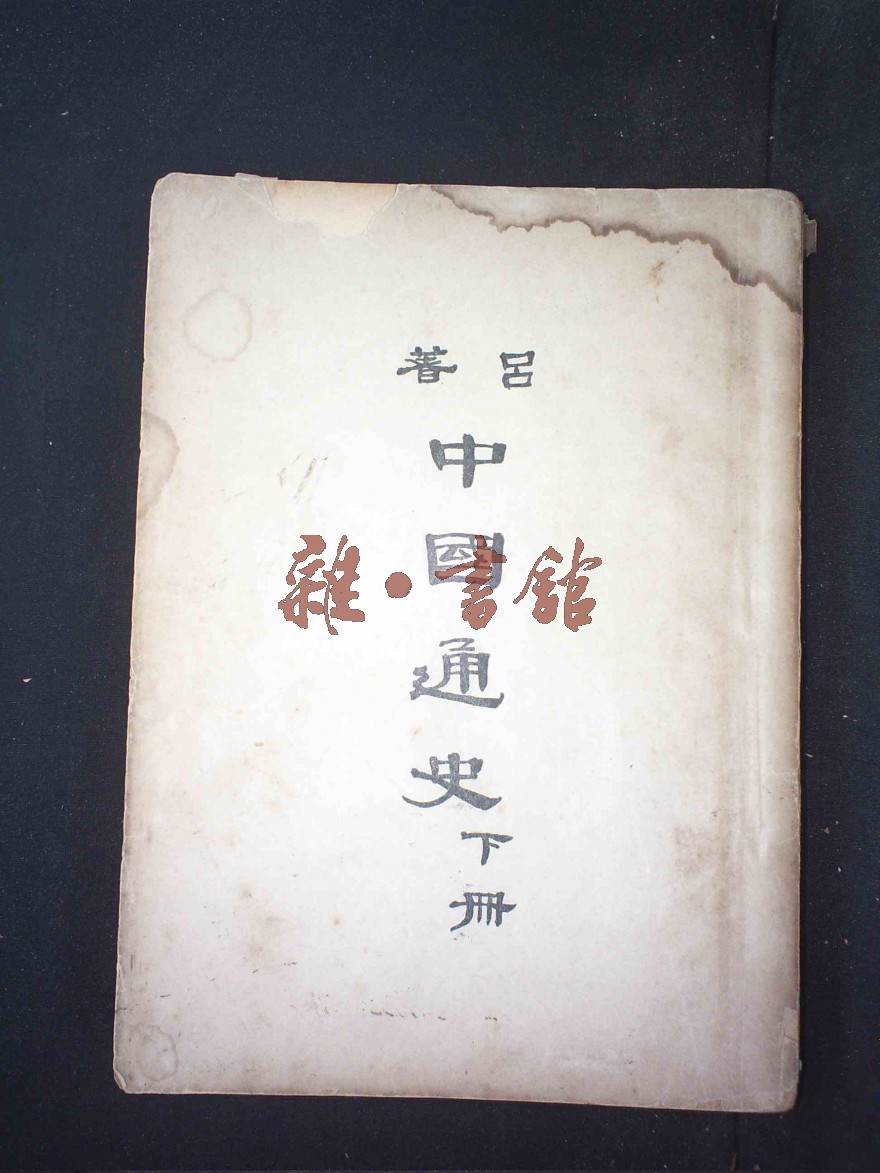 呂著
中國通史
下冊
雜·書館